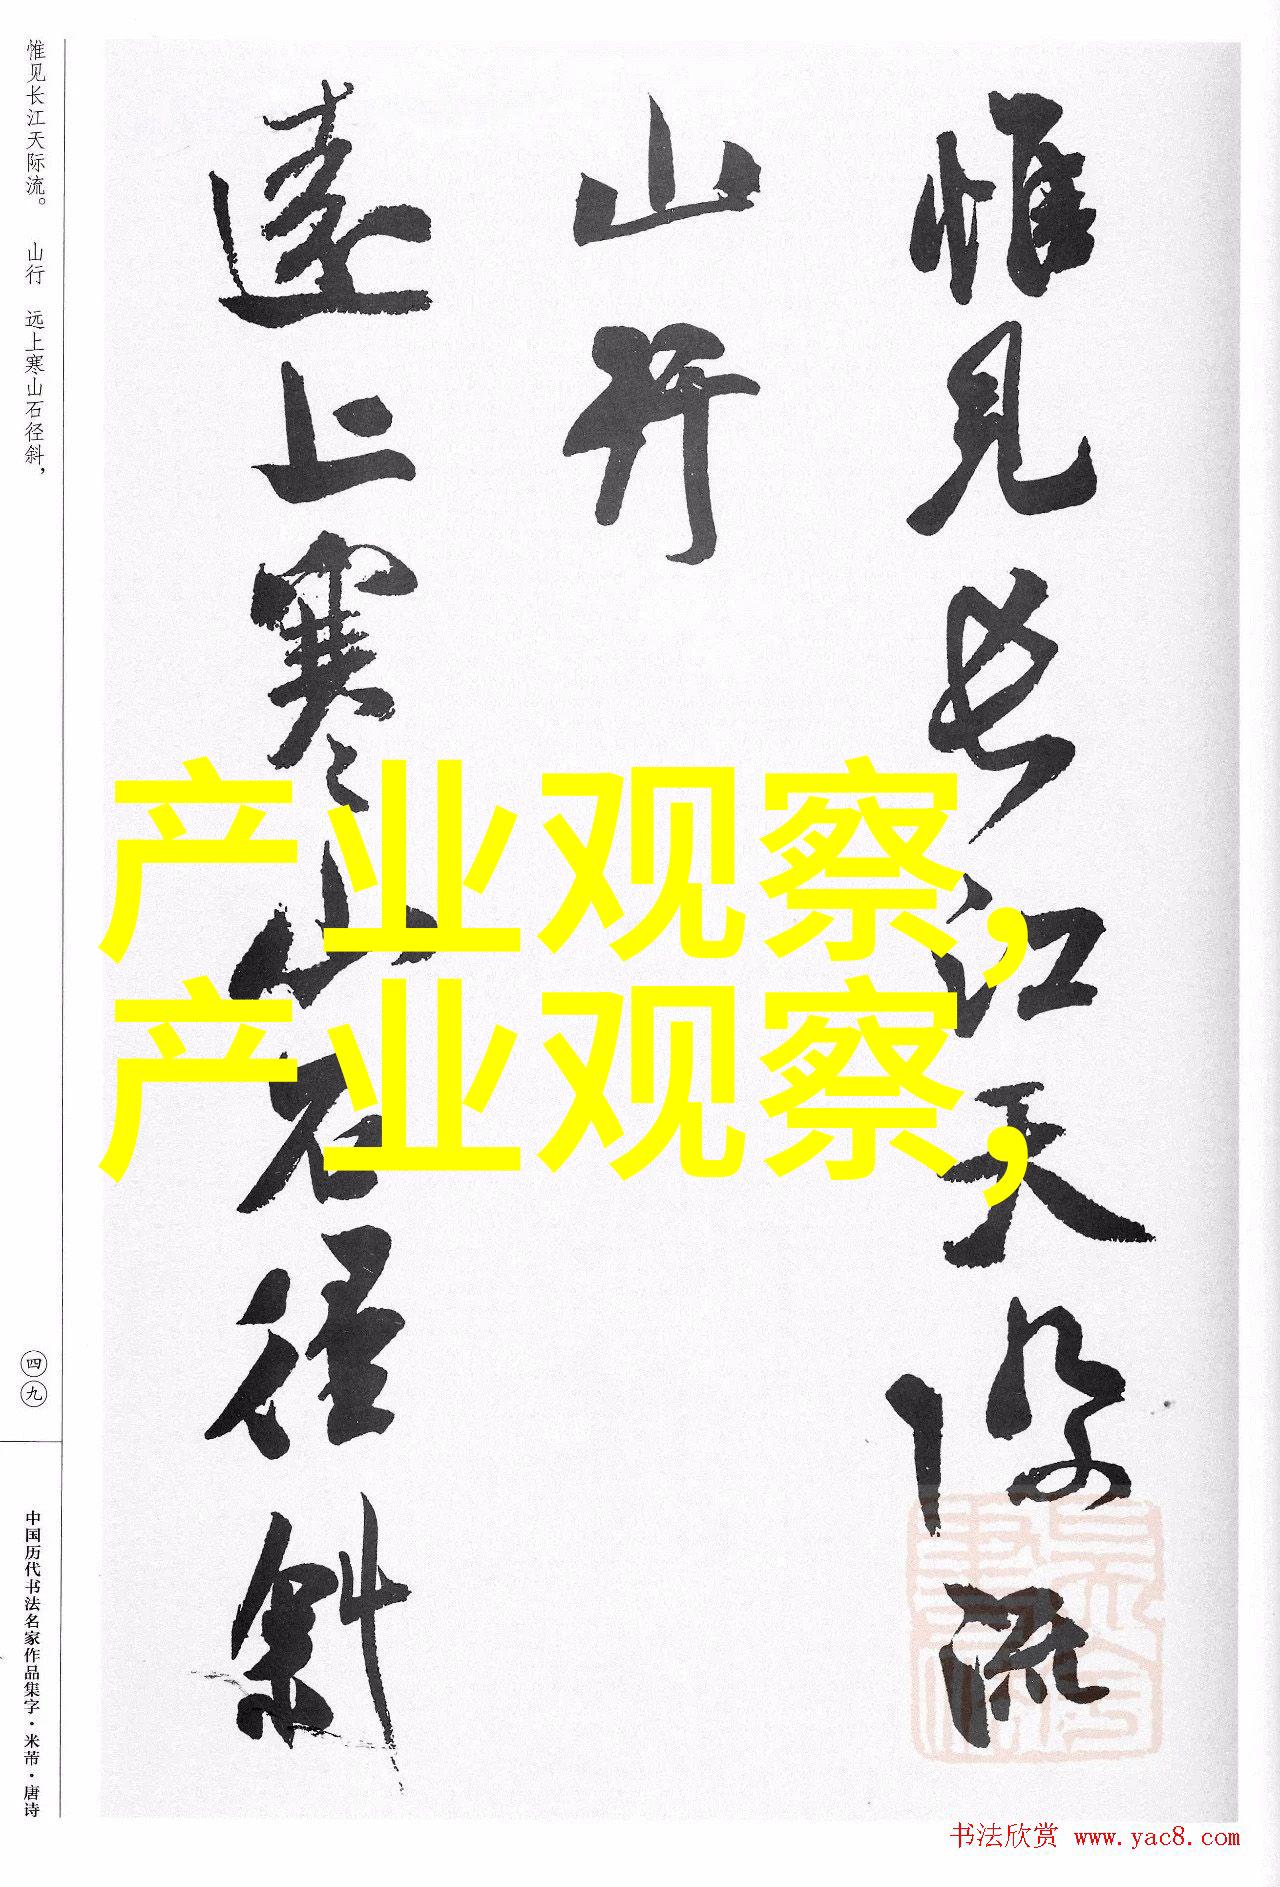 惟见长江天际流。 山行 远上寒山石径斜，
四九
中国历代书法名家作品集字·米芾·唐诗
惟見長江天際流
山行
遠上寒山石徑斜
产业观察，
产业观察，
书法欣赏 www.yac8.com